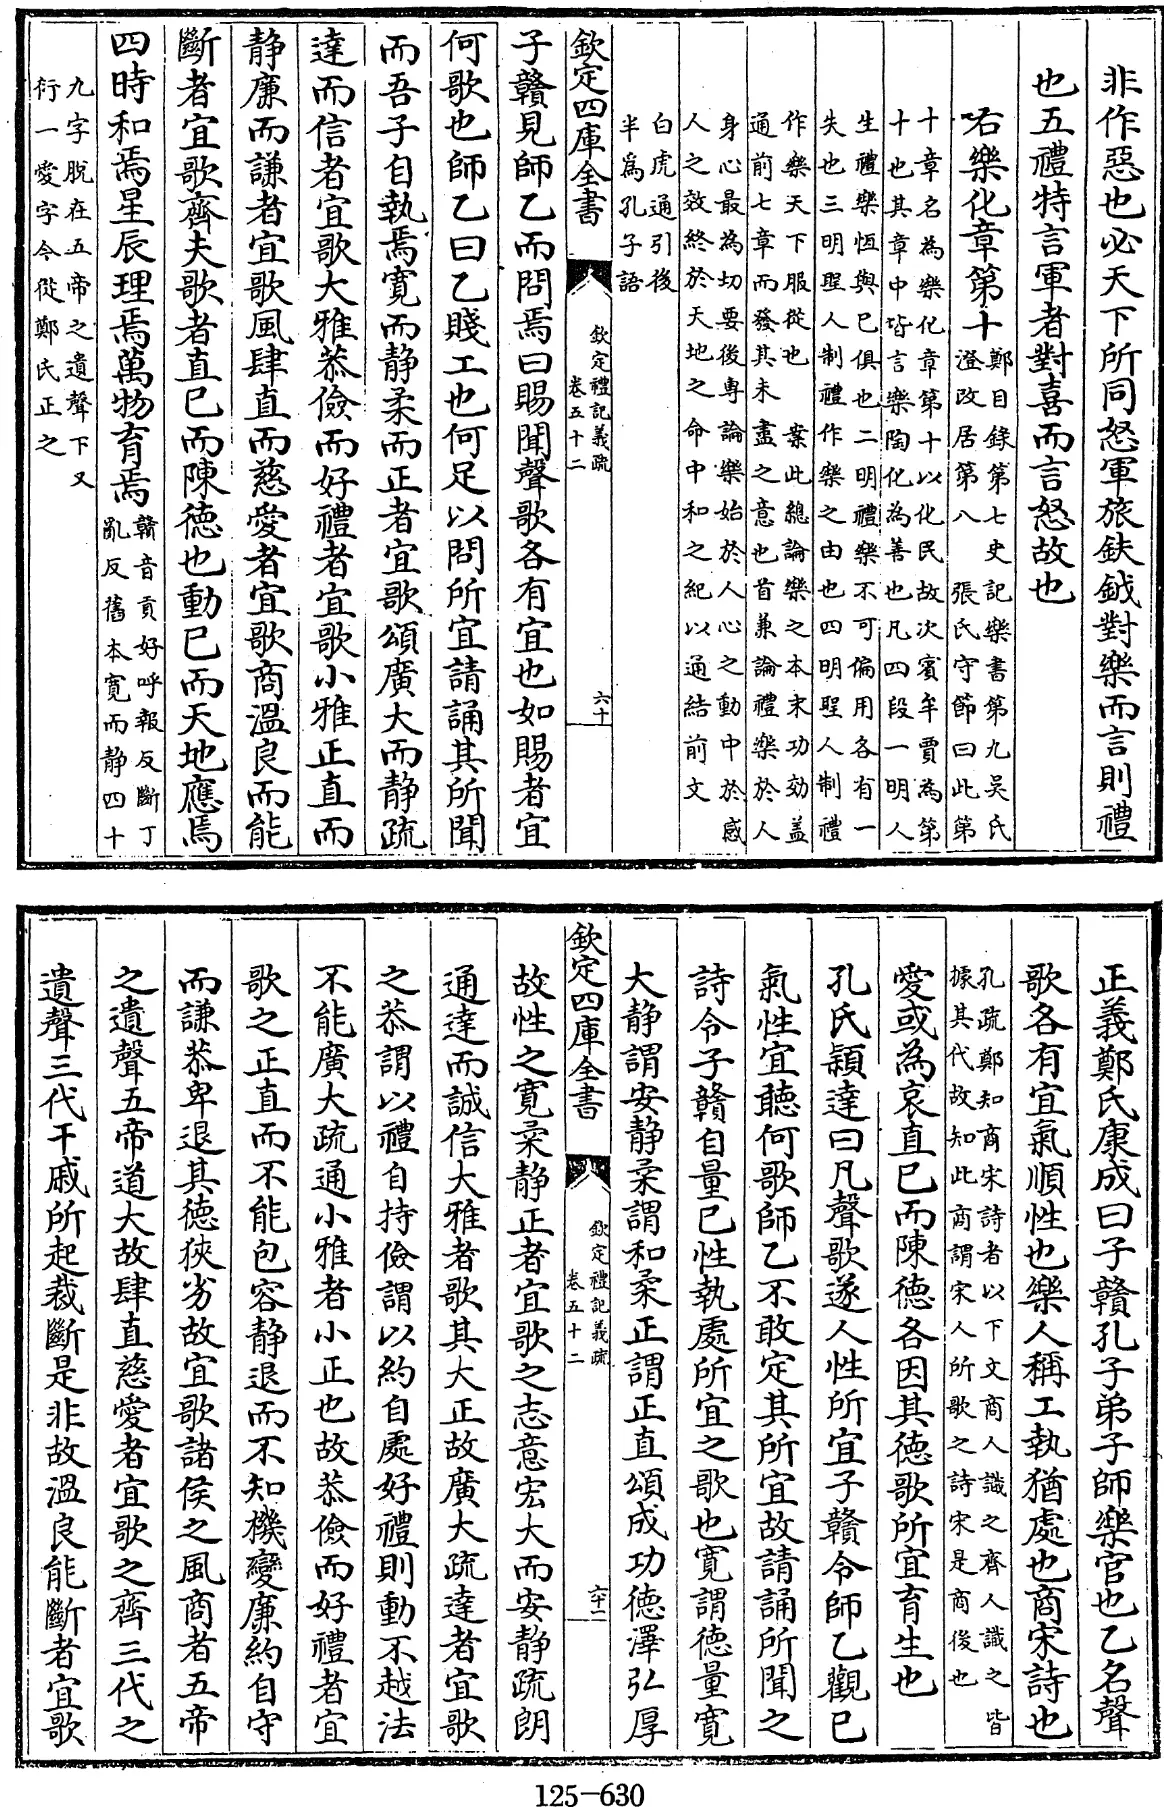 非作惡也必天下所同怒軍旅鈇鉞對樂而言則禮
也五禮特言軍者對喜而言怒故也
右樂化章第十
鄭目錄第七史記樂書第九吳氏
澄改居第八　張氏守節曰此第
十章名為樂化章第十以化民故次賓牟賈為第
十也其章中皆言樂陶化為善也凡四段一明人
生禮樂恆與已俱也二明禮樂不可偏用各有一
失也三明聖人制禮作樂之由也四明聖人制禮
作樂天下服從也　案此總論樂之本末功効蓋
通前七章而發其未盡之意也首兼論禮樂於人
身心最為切要後專論樂始於人心之動中於感
人之效終於天地之命中和之紀以通結前文
白虎通引後
半為孔子語
欽定四庫全書
欽定禮記義疏
卷五十二
六十
子贛見師乙而問焉曰賜聞聲歌各有宜也如賜者宜
何歌也師乙曰乙賤工也何足以問所宜請誦其所聞
而吾子自執焉寛而静柔而正者宜歌頌廣大而静疏
達而信者宜歌大雅恭儉而好禮者宜歌小雅正直而
静廉而謙者宜歌風肆直而慈愛者宜歌商溫良而能
斷者宜歌齊夫歌者直已而陳徳也動已而天地應焉
四時和焉星辰理焉萬物育焉
贛音貢好呼報反斷丁
亂反舊本寛而静四十
九字脫在五帝之遺聲下又
衍一愛字今從鄭氏正之
正義鄭氏康成曰子贛孔子弟子師樂官也乙名聲
歌各有宜氣順性也樂人稱工執猶處也商宋詩也
孔疏鄭知商宋詩者以下文商人識之齊人識之皆
據其代故知此商謂宋人所歌之詩宋是商後也
愛或為哀直已而陳徳各因其徳歌所宜育生也
孔氏穎達曰凡聲歌遂人性所宜子贛令師乙觀已
氣性宜聽何歌師乙不敢定其所宜故請誦所聞之
詩令子贛自量已性執處所宜之歌也寛謂徳量寛
大静謂安静柔謂和柔正謂正直頌成功徳澤弘厚
欽定四庫全書
欽定禮記義疏
卷五十二
六十一
故性之寛柔静正者宜歌之志意宏大而安静疏朗
通達而誠信大雅者歌其大正故廣大疏達者宜歌
之恭謂以禮自持儉謂以約自處好禮則動不越法
不能廣大疏通小雅者小正也故恭儉而好禮者宜
歌之正直而不能包容静退而不知機變廉約自守
而謙恭卑退其徳狹劣故宜歌諸侯之風商者五帝
之遺聲五帝道大故肆直慈愛者宜歌之齊三代之
遺聲三代干戚所起裁斷是非故溫良能斷者宜歌
125-630